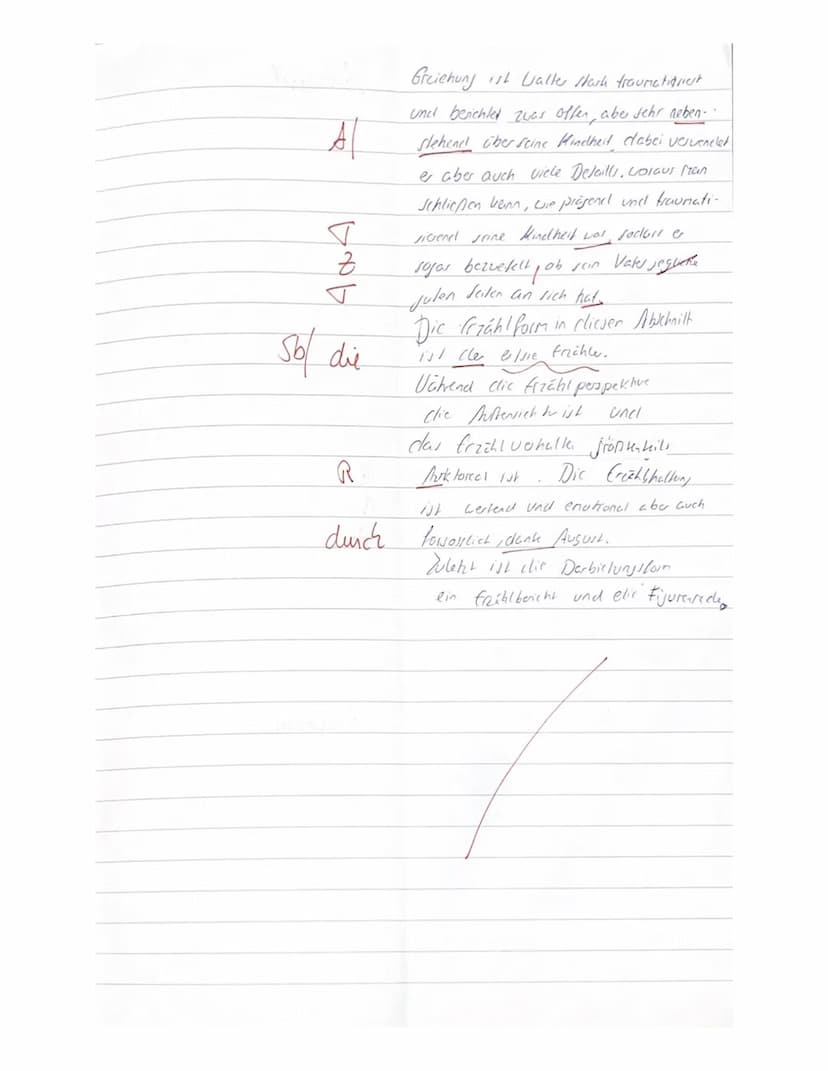 Erziehung ist Walter stark traumatisiert
und berichtet zwar offen, aber sehr neben-
A/ stehend über seine Kindheit, dabei verwendet
er aber auch viele Details, woraus man
schließen kann, wie prägend und traumati-
T sierend seine Kindheit war, sodass er
Z sogar bezweifelt, ob sein Vater jegliche
T guten Seiten an sich hat.
Die Erzählform in diesen Abschnitt
Sb/ die ist der Erzähler.
Während die Erzählperspektive
die Außensicht ist und
das Erzählverhalten größtenteils
R Auktorial ist. Die Erzählhaltung
ist wertend und emotional aber auch
durch dank August.
Zuletzt ist die Darbietungsform
ein Erzählbericht und die Figurenrede.